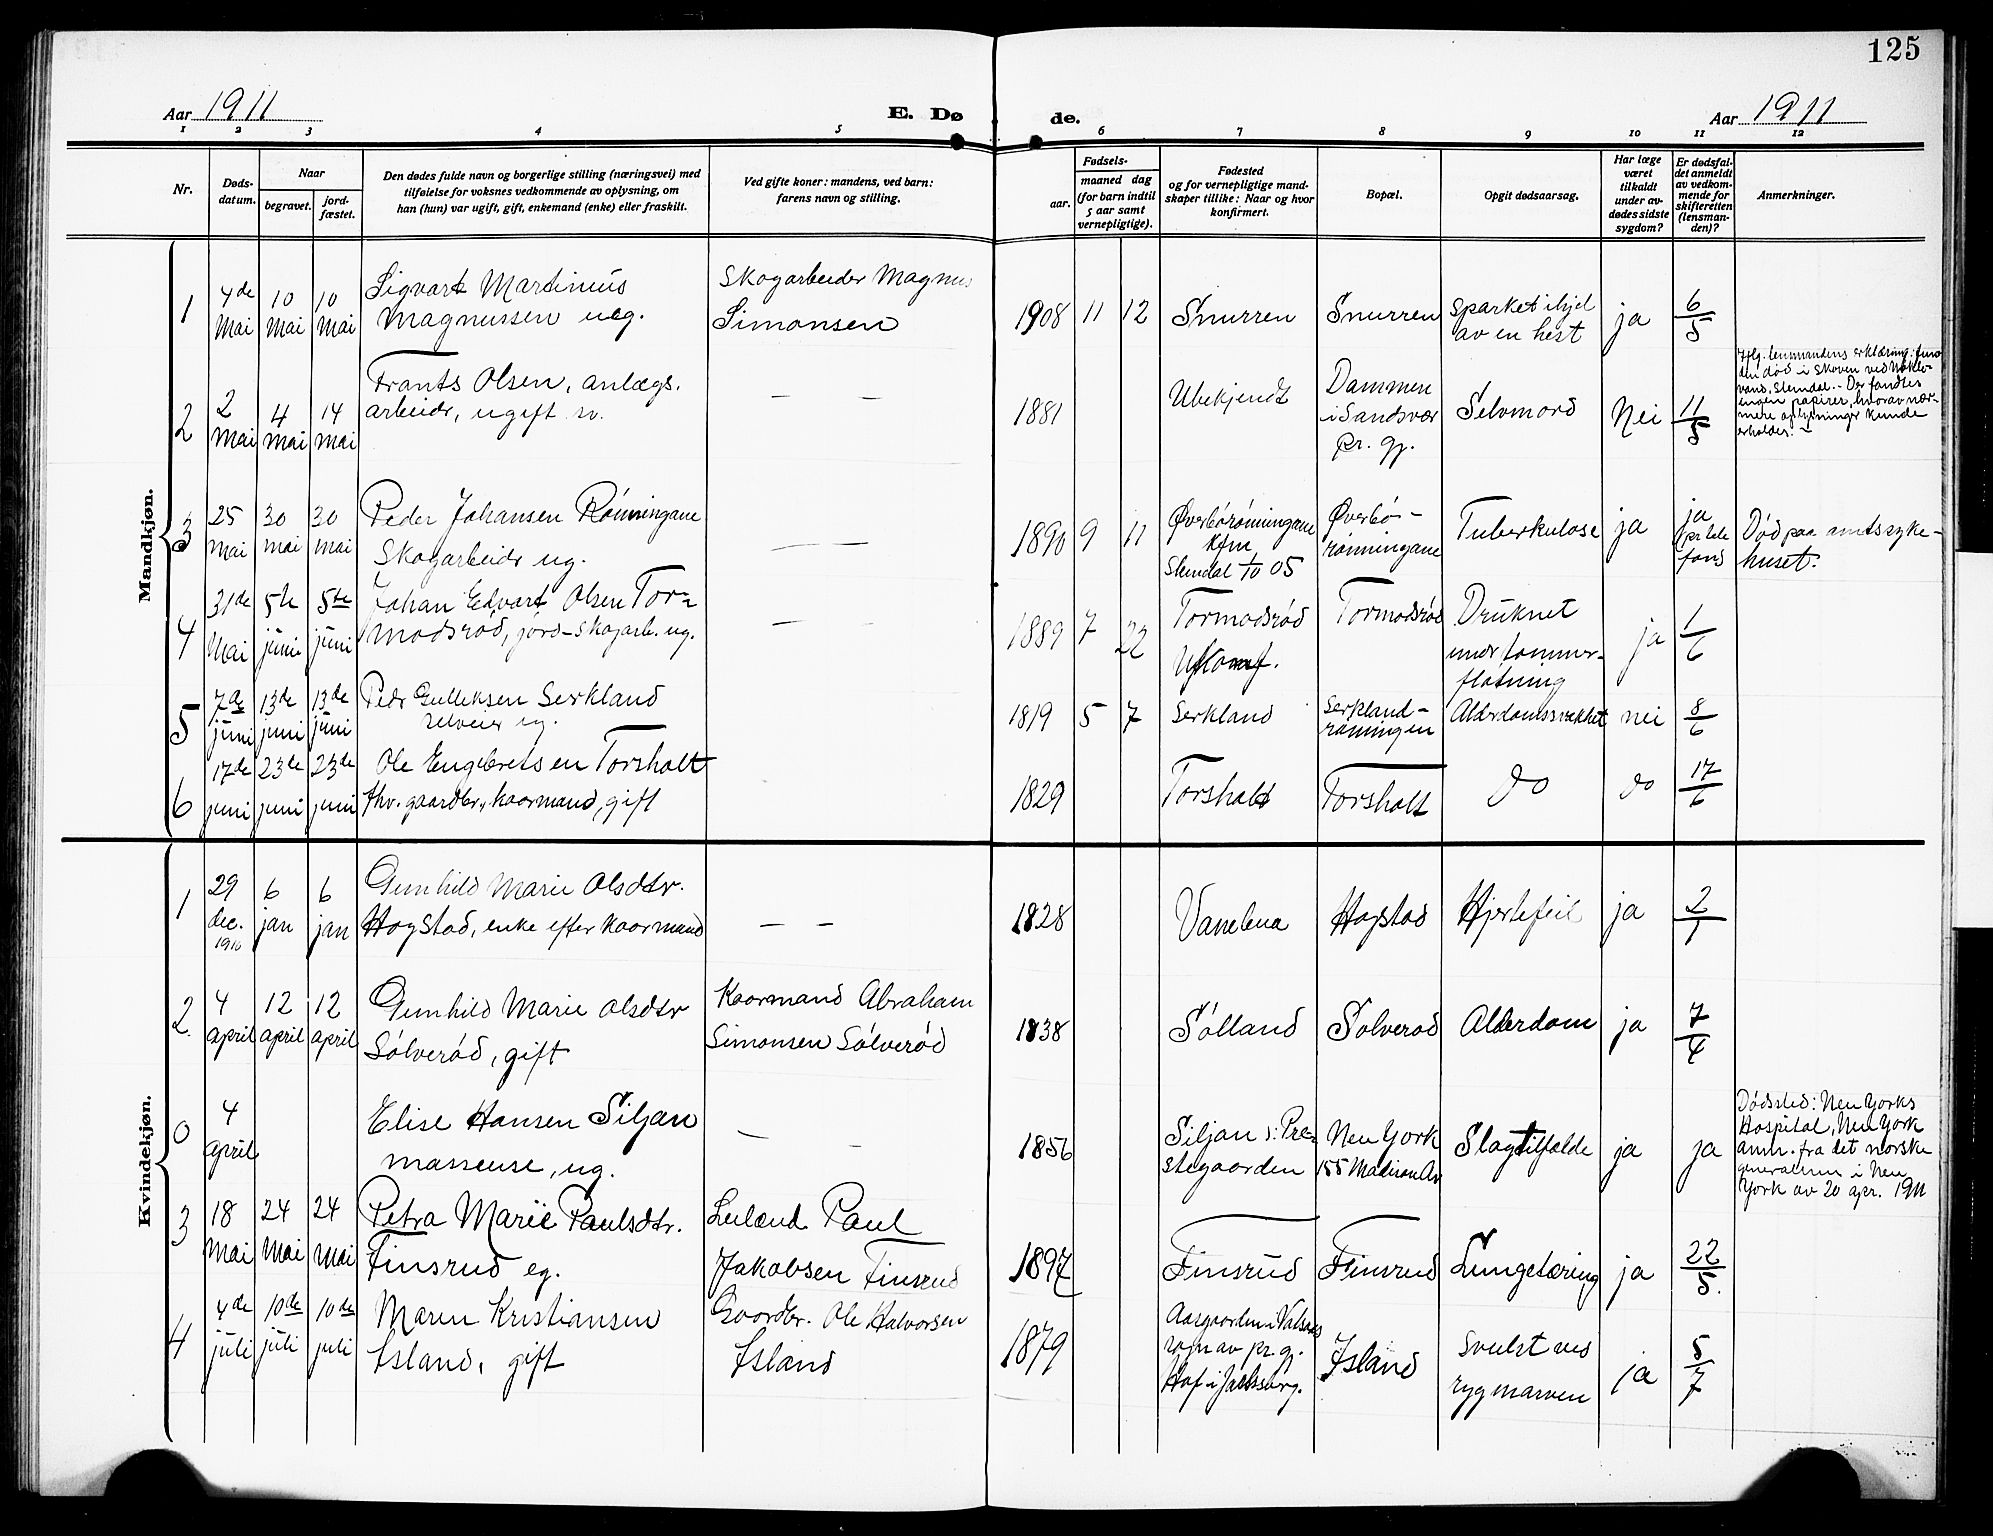 125
Aar 1911
E. Dø
de.
Aar 1911
1 2 3 4 5 6 7 8 9 10 11 12
Nr.
Døds-
datum.
Naar
begravet.
jord-
fæstet.
Den dødes fulde navn og borgerlige stilling (næringsvei) med
tilføielse for voksnes vedkommende av oplysning, om
han (hun) var ugift, gift, enkemand (enke) eller fraskilt.
Ved gifte koner: mandens, ved barn:
farens navn og stilling.
Fødsels-
aar.
maaned dag
(for barn indtil
5 aar samt
vernepligtige).
Fødested
og for vernepligtige mand-
skaper tillike: Naar og hvor
konfirmert.
Bopæl.
Opgit dødsaarsag.
Har læge
været
tilkaldt
under av-
dødes sidste
sygdom?
Er dødsfal-
det anmeldt
av vedkom-
mende for
skifteretten
(lensman-
den)?
Anmerkninger.
Mandkjøn.
1
4de
Mai
10
Mai
10
Mai
Sigvart Martinius
Magnussen ug.
Skogarbeider Magnus
Simonsen
1908 11 12
Snurren
Snurren
Sparket ihjel
av en hest
ja
6/5
2
2
mai
4
mai
14
mai
Frants Olsen, anlægs.
arbeidr, ugift
— —
1881
Ubekjendt
Dammen
i Sandsvær
pr. gj.
Selvmord
Nei
11/5
Iflg. lensmandens erklæring: fun-
den død i skoven ved
Slemdal. - Der fandtes
ingen papirer, hvorav nær-
mere oplysninger kunde
erholdes.
3
25
mai
30
mai
30
mai
Peder Johansen Rönningane
Skogarbeidr ug.
— —
1890 9 11
Øverbörönningane
kfm
Slemdal 1/10 05
Øverbö-
rönningane
Tuberkulose
ja
ja
pr tele
fond
Död paa amtssyke-
huset.
4
31de
Mai
5te
juni
5te
juni
Johan Edvart Olsen Tor-
modsröd, jord-skogarb. ug.
— —
1889 7 22
Tormodsröd
Ukonf.
Tormodsröd
Druknet
under tömmer-
flötning
ja
1/6
5
7de
juni
13de
juni
13de
juni
Pedr Gulliksen Serkland
selveier ug.
1819 5 7
Serkland
Serkland-
rönningen
Alderdomssvækket
nei
8/6
6
17de
juni
23de
juni
23de
juni
Ole Engebretsen Torsholt
fhv. gaardbr., kaarmand, gift
1829
Torsholt
Torsholt
do
do
17/6
Kvindekjøn.
1
29
dec.
1910
6
jan
6
jan
Gunhild Marie Olsdtr.
Hogstad, enke efter kaarmand
— —
1828
Vanebua
Hogstad
Hjertefeil
ja
2/1
2
4
april
12
april
12
april
Gunhild Marie Olsdtr
Sölveröd, gift
Kaarmand Abraham
Simonsen Sölveröd
1838
Sölland
Sölveröd
Alderdom
ja
7/4
0
4
april
Elise Hansen Siljan
masseuse, ug.
—
1856
Siljan ɔ: Pre-
stegaarden
New York
155 Madison Av
Slagtilfælde
ja
ja
Dödssted: New Yorks
Hospital, New York
anm. fra det norske
generalkon i New
York av 20 apr. 1911
3
18
Mai
24
Mai
24
Mai
Petra Marie Paulsdtr.
Finsrud eg.
Leilænd Paul
Jakobsen Finsrud
1897
Finsrud
Finsrud
Lungetæring
ja
22/5.
4
4de
juli
10de
juli
10de
juli
Maren Kristiansen
Island, gift
Gaardbr. Ole Halvorsen
Island
1879
Aasgaarden i Valsaas
sogn av pr. gj.
Hof i Jarlsberg.
Island
Svulst ved
rygmarven
ja
5/7